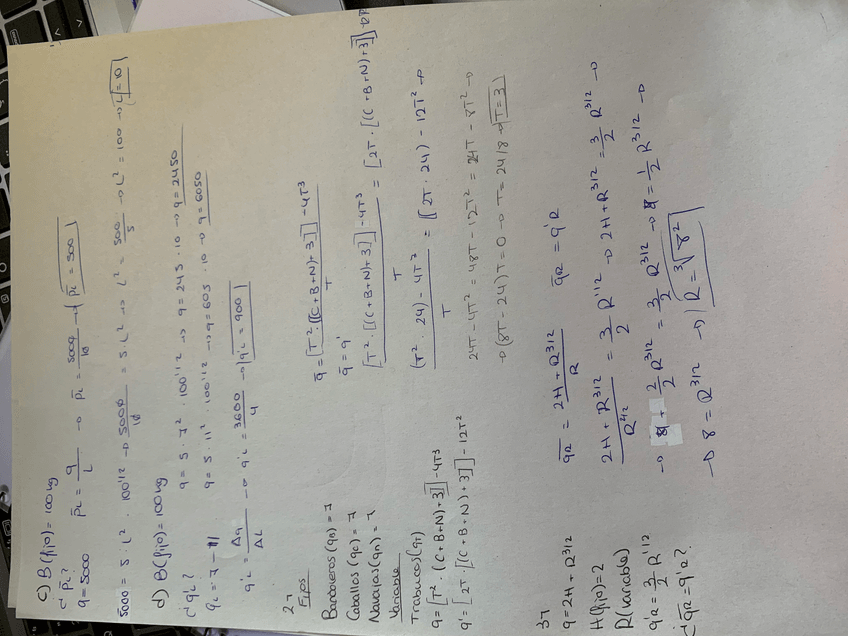 c) B(fijo)=100kg
¿ p̄L?
q=5000 p̄L = q/L → p̄L = 5000/10 → p̄L = 500
5000 = 5 · L² · 100^1/2 → 5000/10 = 5 · L² → L² = 500/5 → L² = 100 → L = 10
d) B(fijo)=100kg
¿ q'L? q = 5 · 7² · 100^1/2 → q = 245 · 10 → q = 2450
qL = 7 - 11 q = 5 · 11² · 100^1/2 → q = 605 · 10 → q = 6050
q'L = Δq/ΔL → q'L = 3600/4 → q'L = 900
2-
Fijos
Bandoleros (qb) = 7
Caballos (qc) = 7
Navajas (qn) = 7
Variable
Trabucos (qT)
q = [T² · [(C+B+N)+3]] - 4T³
q' = [2T · [(C+B+N)+3]] - 12T²
q̄ = [T² · [(C+B+N)+3]] - 4T³ / T
q̄ = q'
[T² · [(C+B+N)+3]] - 4T³ / T = [2T · [(C+B+N)+3]] - 12T²
(T² · 24) - 4T³ / T = [2T · 24) - 12T² →
24T - 4T² = 48T - 12T² = 24T - 8T² →
→ (8T - 24)T = 0 → T = 24/8 → T = 3
3-
q = 2H + R^3/2
H(fijo) = 2
R(variable)
q'R = 3/2 R^1/2
¿ q̄R = q'R?
q̄R = 2H + R^3/2 / R q̄R = q'R
2H + R^3/2 / R^4/2 = 3/2 R^1/2 → 2H + R^3/2 = 3/2 R^3/2 →
→ 4 + 2/2 R^3/2 = 3/2 R^3/2 → 4 = 1/2 R^3/2 →
→ 8 = R^3/2 → R = ³√8²